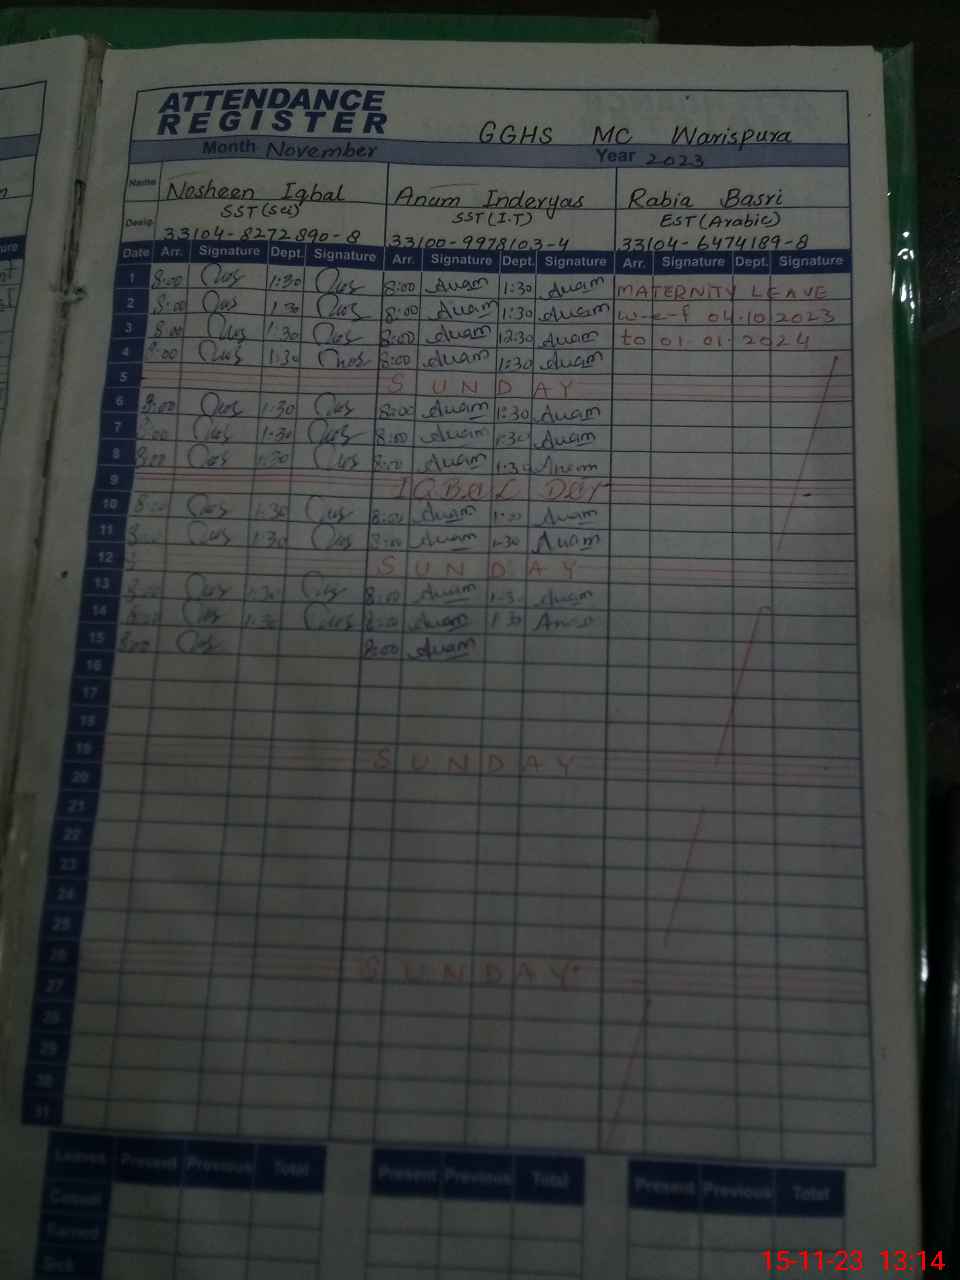 ATTENDANCE
REGISTER
GGHS MC Warispura
Month November Year 2023
Name Nosheen Iqbal Anum Inderyas Rabia Basri
Desig. SST(Sci) SST(I.T) EST(Arabic)
33104-8272890-8 33100-9978103-4 33104-6474189-8
Date Arr. Signature Dept. Signature Arr. Signature Dept. Signature Arr. Signature Dept. Signature
1 8:00 1:30 8:00 Anam 1:30 Anam MATERNITY LEAVE
2 8:00 1:30 8:00 Anam 1:30 Anam w-e-f 04.10.2023
3 8:00 1:30 8:00 Anam 12:30 Anam to 01.01.2024
4 8:00 1:30 8:00 Anam 1:30 Anam
5 SUNDAY
6 8:00 1:30 8:00 Anam 1:30 Anam
7 8:00 1:30 8:00 Anam 1:30 Anam
8 8:00 1:30 8:00 Anam 1:30 Anam
9 IQBAL DAY
10 8:00 1:30 8:00 Anam Anam
11 8:00 1:30 8:00 Anam 1:30 Anam
12 SUNDAY
13 8:00 1:30 8:00 Anam 1:30 Anam
14 8:00 1:30 8:00 Anam 1:30
15 8:00 8:00 Anam
16
17
18
19 SUNDAY
20
21
22
23
24
25
26 SUNDAY
27
28
29
30
31
Leaves Present Previous Total Present Previous Total Present Previous Total
Casual
Earned
Sick
15-11-23 13:14